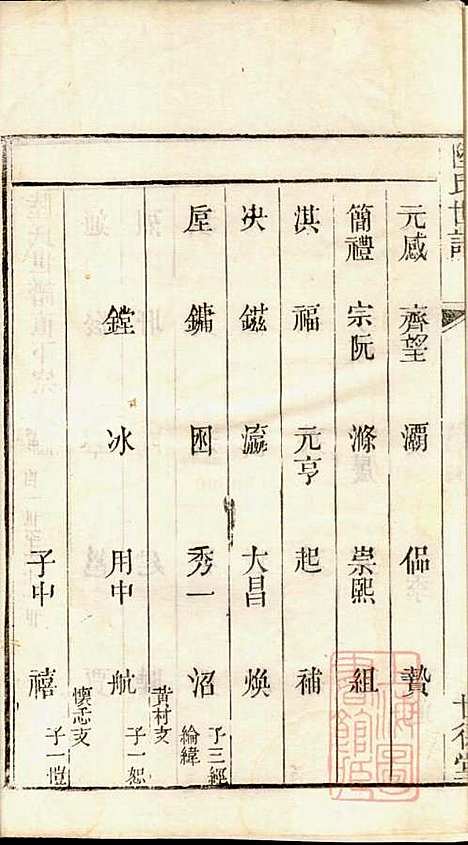 元感 齊望 灞 偘 贄
簡禮 宗阮 滌 崇熙 組
淇 福 元亨 起 補
決 鎡 瀛 大昌 煥
垕 鏞 困 秀一 沼 子三經綸緯
黃村支
鏜 冰 用中 航 子一恕
懷忢支
子中 禧 子一愷